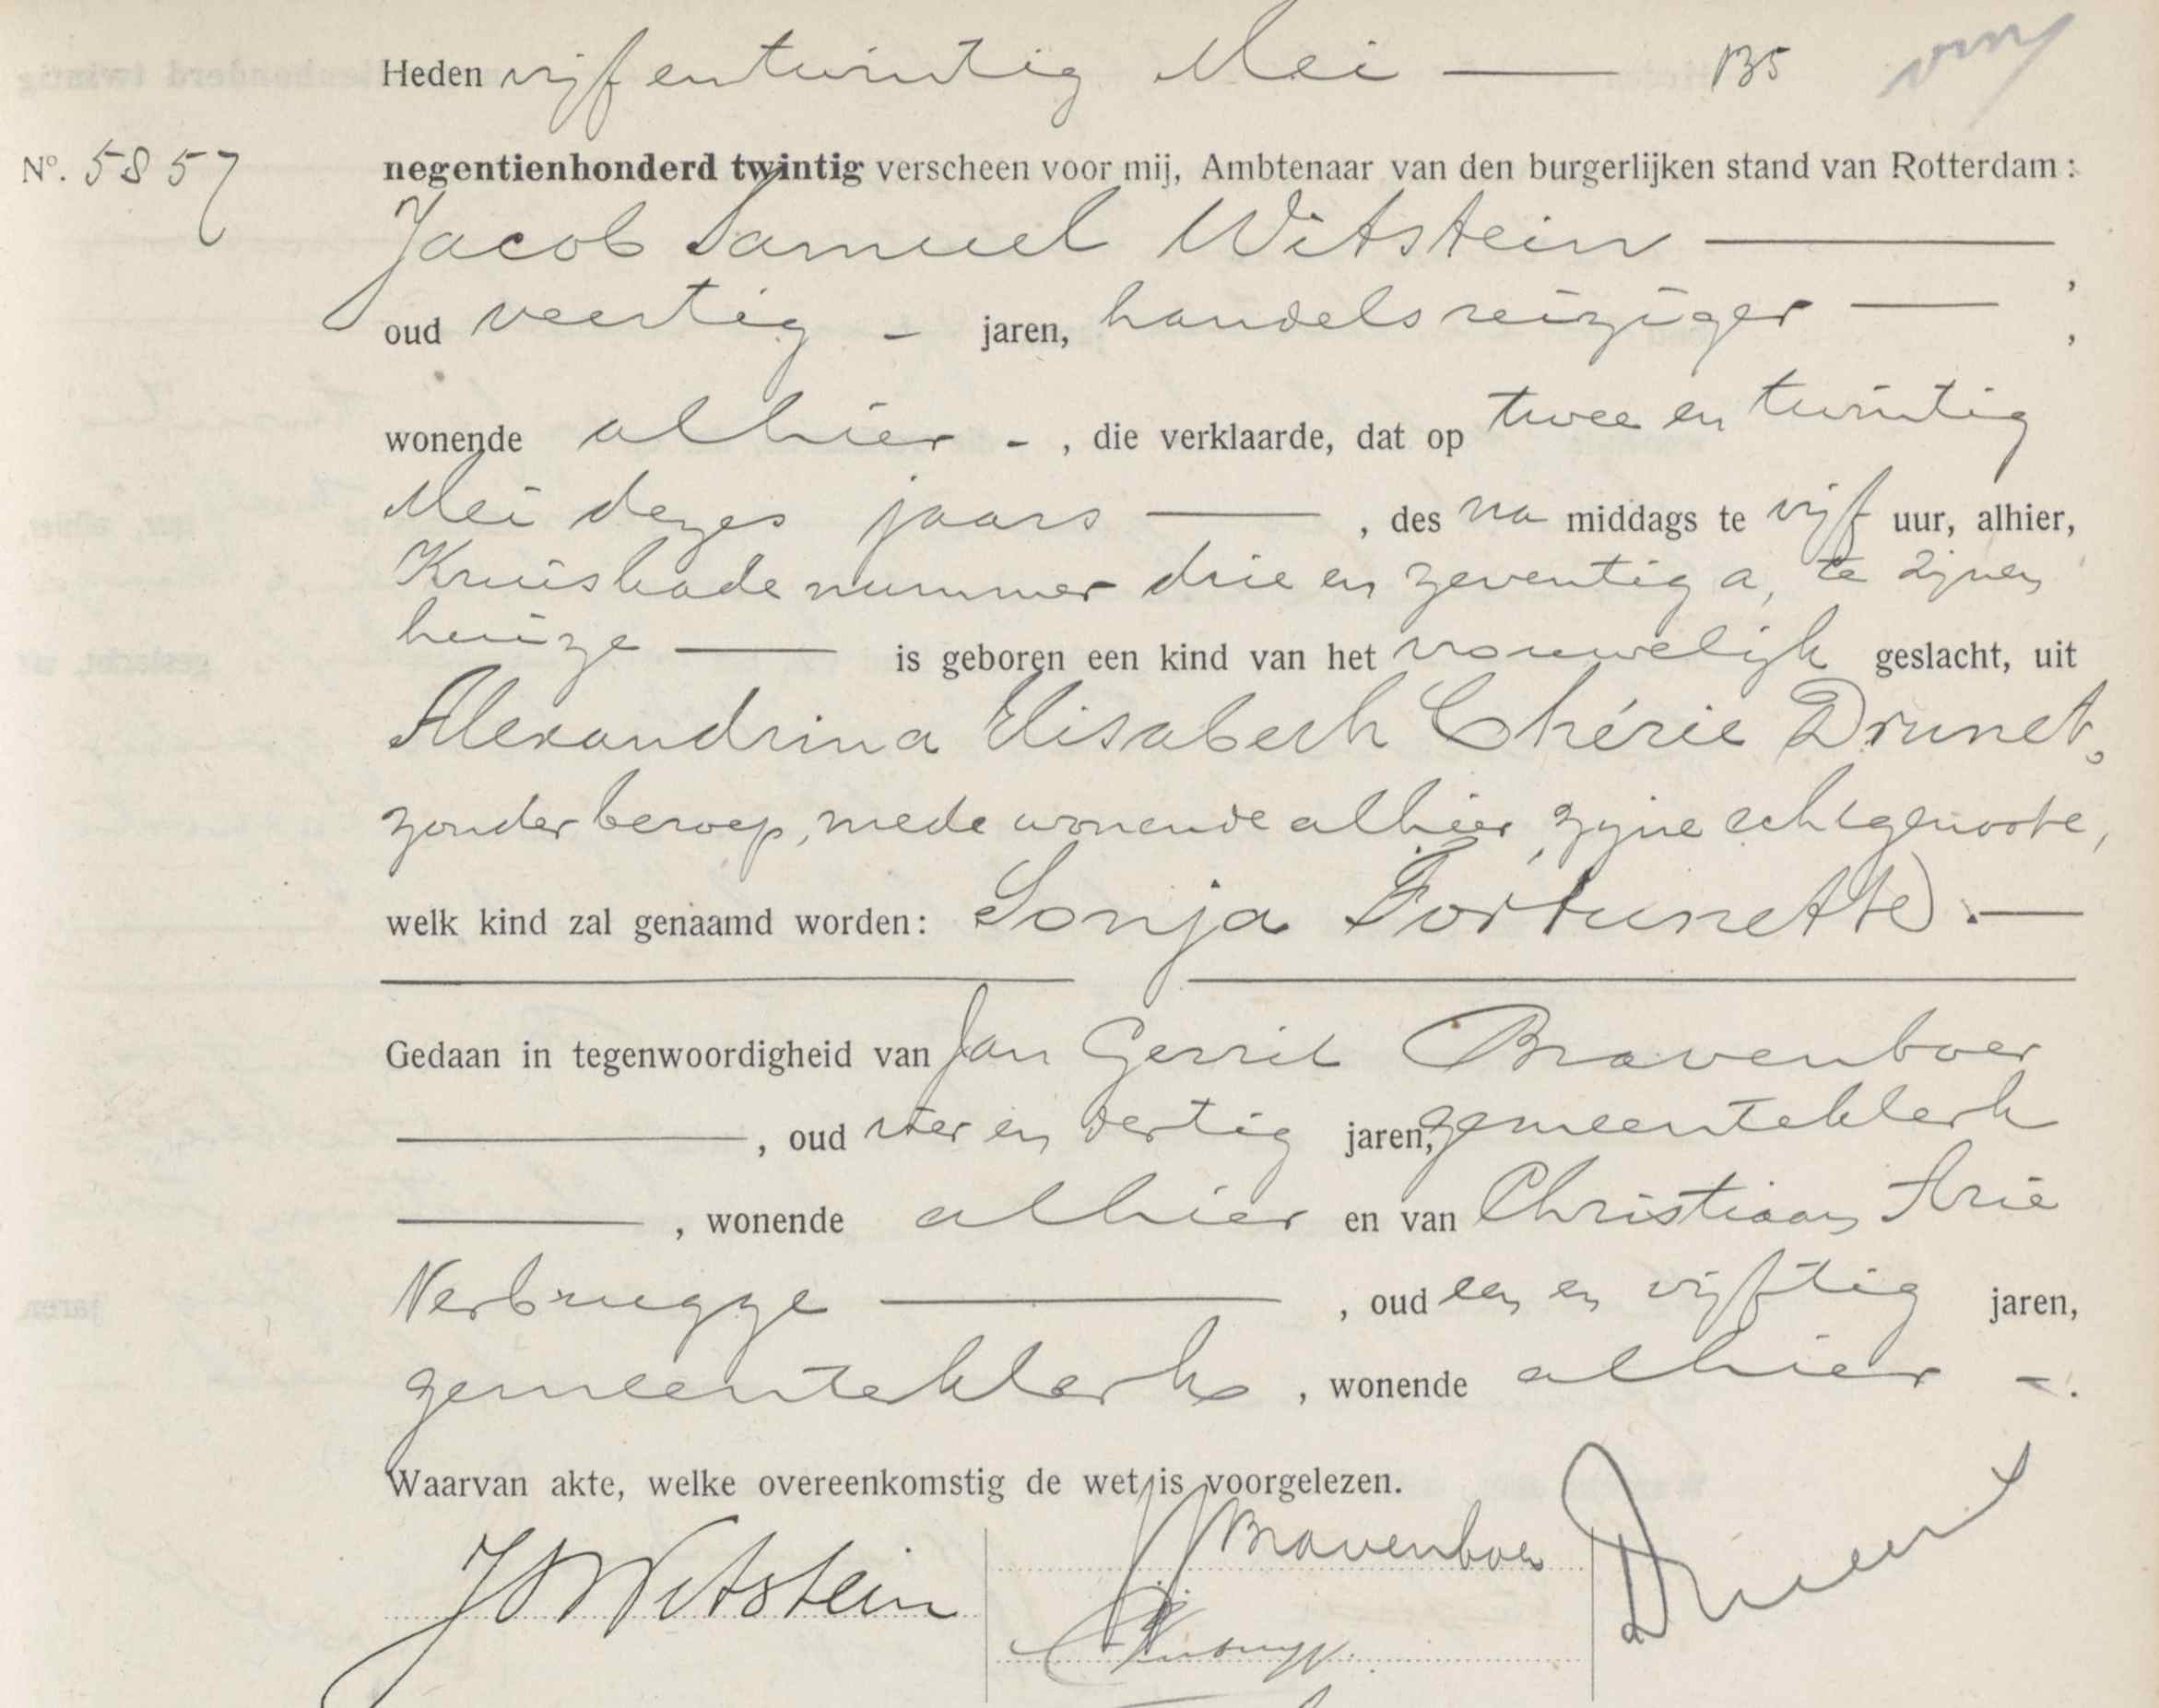 Heden vijf en twintig Mei — 135
No. 5857
negentienhonderd twintig verscheen voor mij, Ambtenaar van den burgerlijken stand van Rotterdam:
Jacob Samuel Witstein — ,
oud veertig - jaren, handelsreiziger — ,
wonende alhier - , die verklaarde, dat op twee en twintig
Mei dezes jaars — , des na middags te vijf uur, alhier,
Kruiskade nummer drie en zeventig a, te zijnen
huize — is geboren een kind van het vrouwelijk geslacht, uit
Alexandrina Elisabeth Chérie Drunet,
zonder beroep, mede wonende alhier, zijne echtgenoote,
welk kind zal genaamd worden: Sonja Fortunette. —
Gedaan in tegenwoordigheid van Jan Gerrit Bravenboer
— , oud vier en dertig jaren, gemeenteklerk
— , wonende alhier en van Christiaan Arie
Verbrugge — , oud een en vijftig jaren,
gemeenteklerk , wonende alhier - .
Waarvan akte, welke overeenkomstig de wet is voorgelezen.
JSWitstein
JGBravenboer